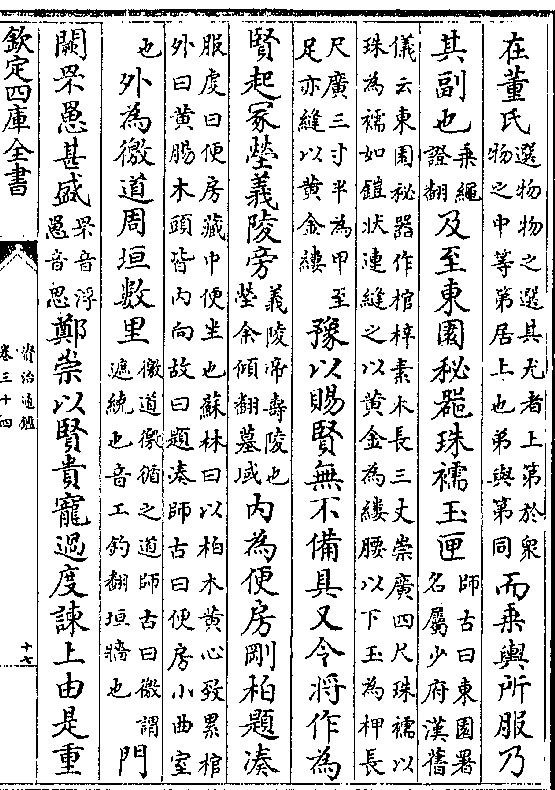 在董氏選物物之選其尤者上第於衆物之中等第居上也弟與第同而乘輿所服乃
其副也乘繩證翻及至東園秘器珠襦玉匣師古曰東園署名屬少府漢舊
儀云東園秘器作棺梓素木長三丈崇廣四尺珠襦以珠為襦如鎧狀連縫之以黄金為縷腰以下玉為柙長
尺廣三寸半為甲至足亦縫以黄金縷豫以賜賢無不備具又令將作為
賢起冢塋義陵旁義陵帝壽陵也塋余傾翻墓域内為便房剛柏題湊
服虔曰便房藏中便坐也蘇林曰以柏木黄心致累棺外曰黄腸木頭皆内向故曰題湊師古曰便房小曲室
也外為徼道周垣數里徼道徼循之道師古曰徼謂遮繞也音工釣翻垣牆也門
闕罘罳甚盛罘音浮罳音思鄭崇以賢貴寵過度諫上由是重
欽定四庫全書
資治通鑑
卷三十四
十七